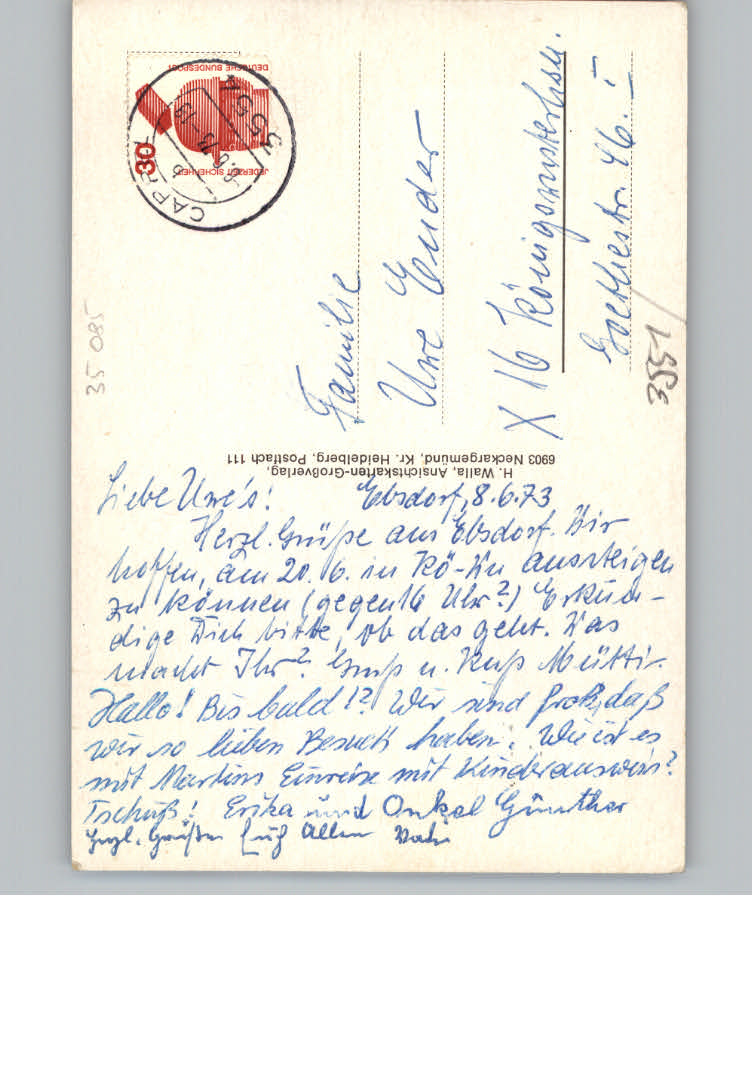 DEUTSCHE BUNDESPOST
JEDERZEIT SICHERHEIT
30
3551
CAPPEL
8.6.73-13
35 085
Familie
Uwe Ender
X 16 Königswusterhsn.
Goethestr. 46. I
3551
H. Walla, Ansichtskarten-Großverlag,
6903 Neckargemünd, Kr. Heidelberg, Postfach 111
Liebe Uwe's! Ebsdorf, 8.6.73
Herzl. Grüße aus Ebsdorf. Wir
hoffen, am 20. 6. in Kö-Wu aussteigen
zu können (gegen 16 Uhr?) Erkun-
dige Dich bitte, ob das geht. Was
macht Ihr? Gruß u. Kuß Mutti.
Hallo! Bis bald!? Wir sind froh, daß
wir so lieben Besuch haben. Wie ist es
mit Martins Einreise mit Kinderausweis?
Tschüß! Erika und Onkel Günther
Herzl. Grüße Euch Allen Vati